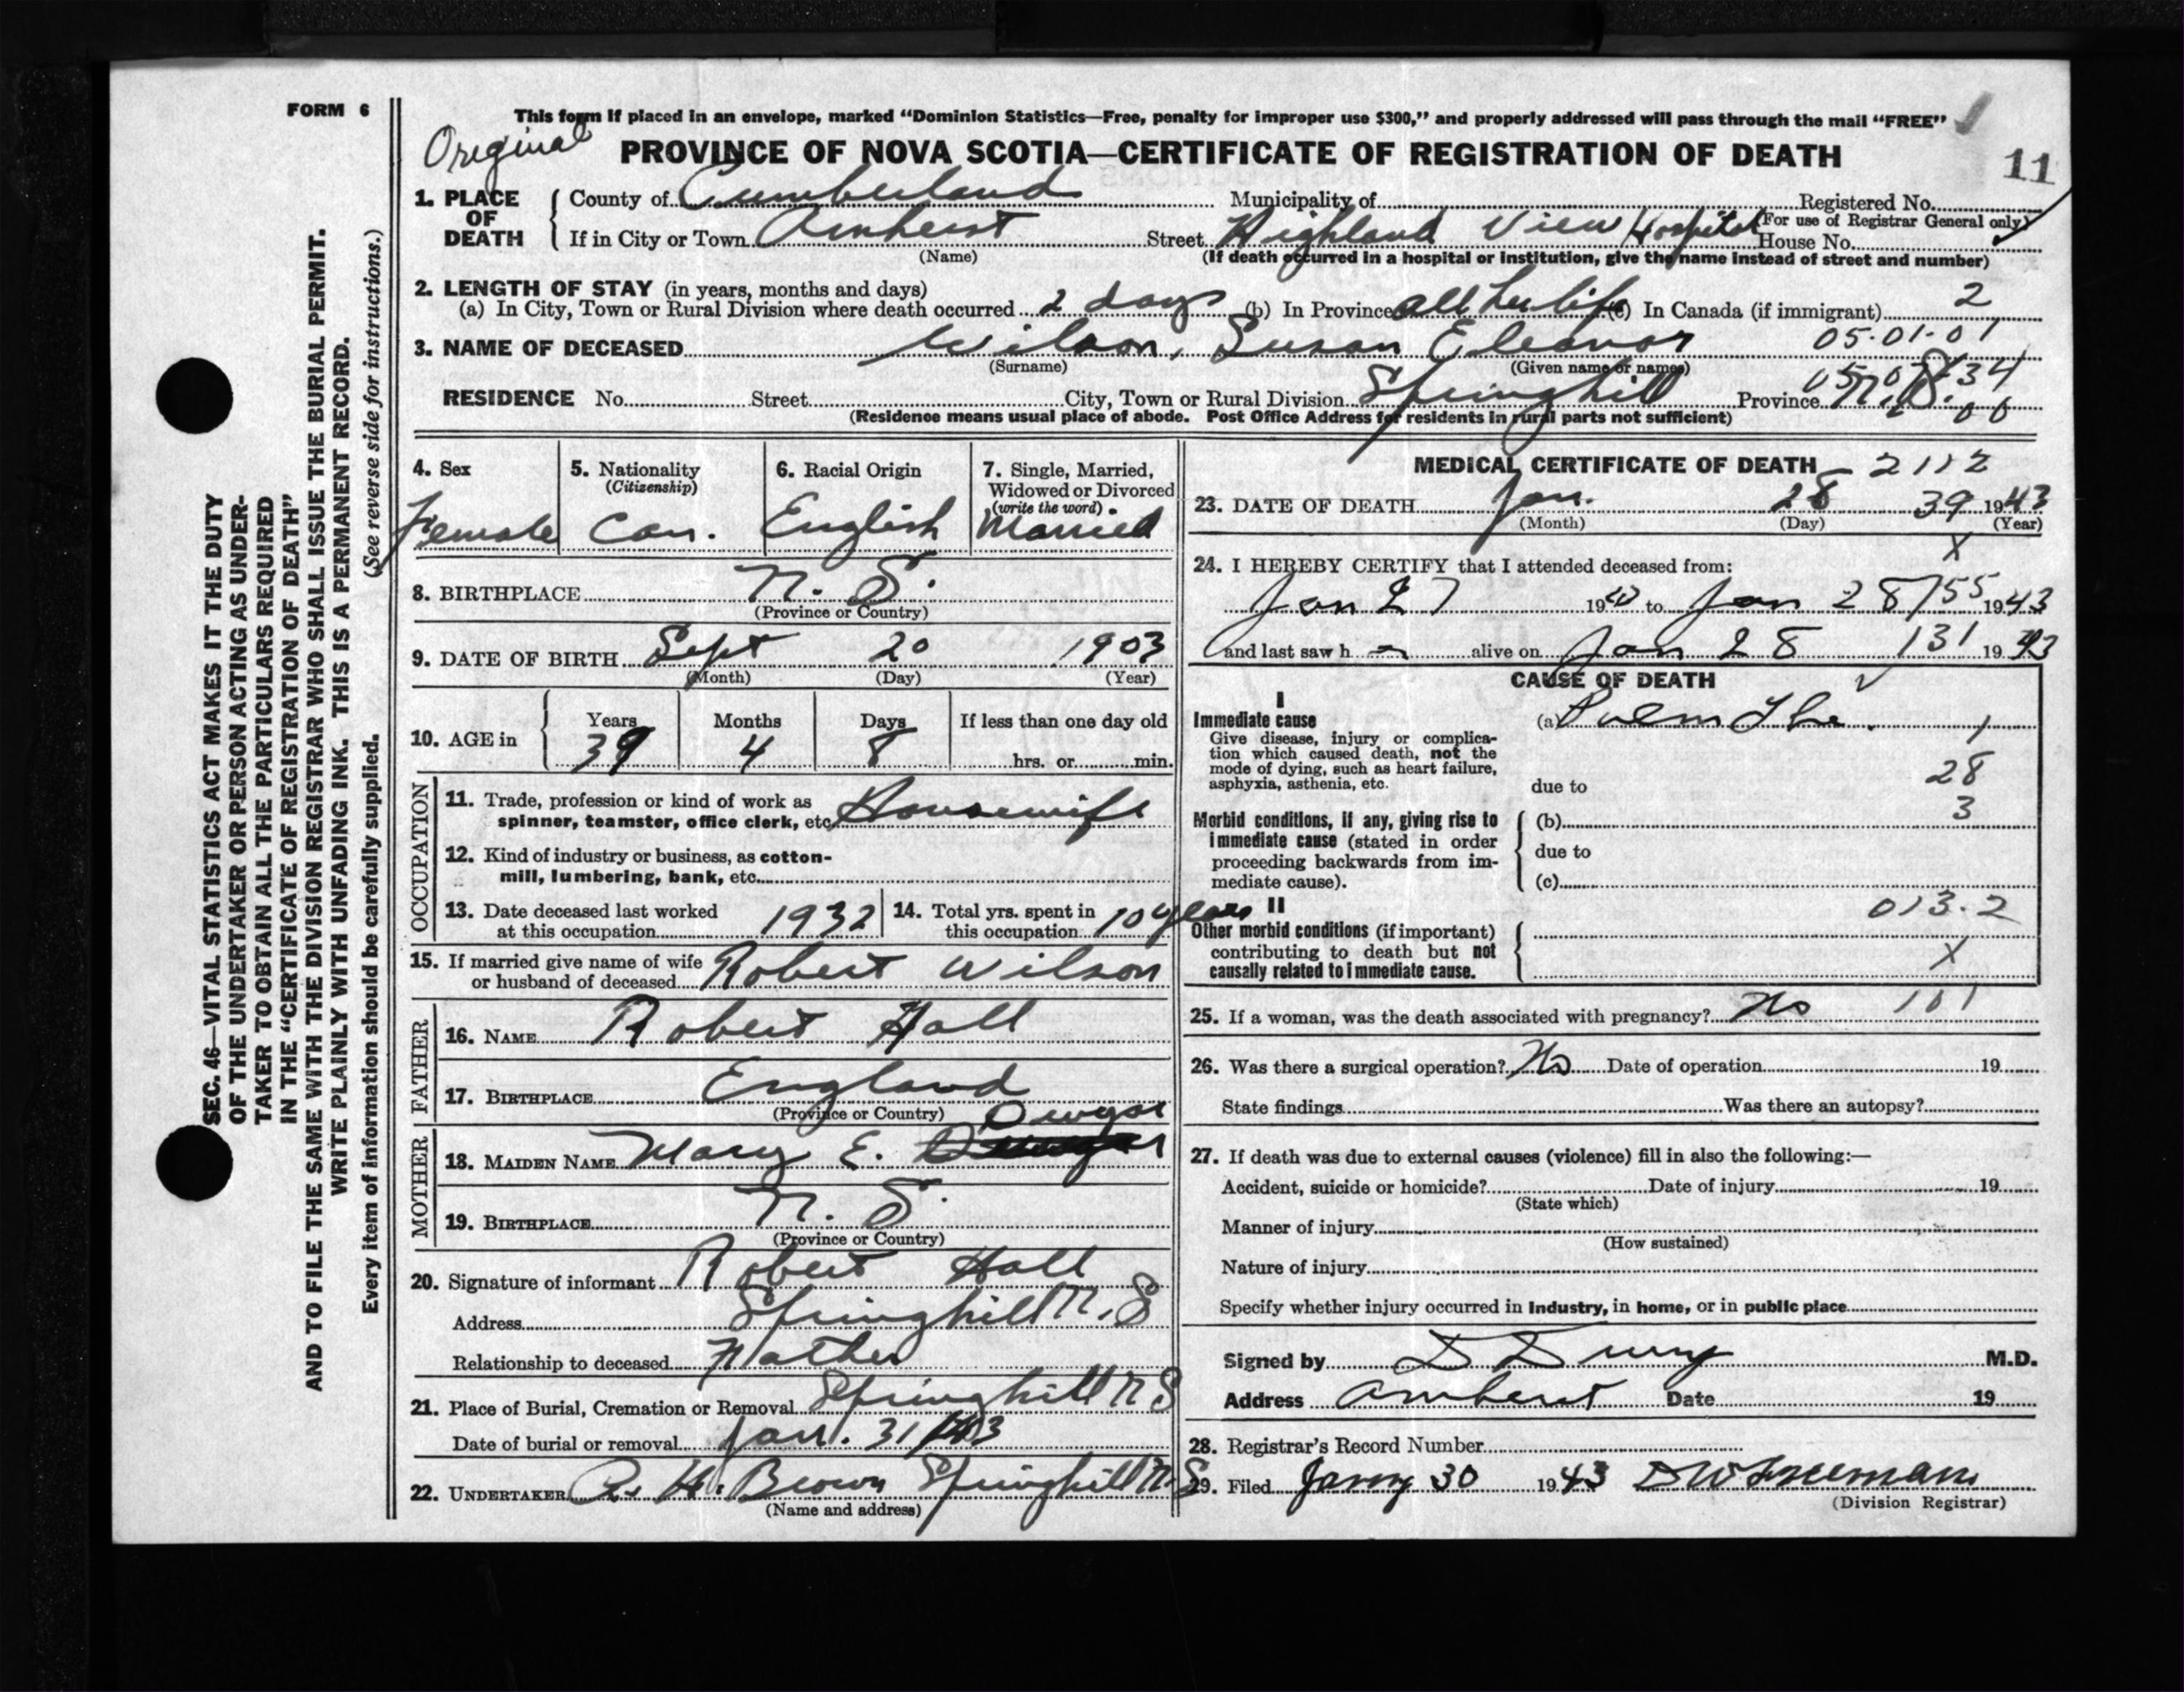 FORM 6
This form if placed in an envelope, marked “Dominion Statistics—Free, penalty for improper use $300,” and properly addressed will pass through the mail “FREE”
Original
PROVINCE OF NOVA SCOTIA—CERTIFICATE OF REGISTRATION OF DEATH
11
1. PLACE OF DEATH { County of Cumberland Municipality of Registered No.
(For use of Registrar General only)
If in City or Town Amherst Street Highland View Hospital House No.
(Name) (If death occurred in a hospital or institution, give the name instead of street and number)
2. LENGTH OF STAY (in years, months and days)
(a) In City, Town or Rural Division where death occurred 2 days (b) In Province all her life (c) In Canada (if immigrant) 2
05.01.01
3. NAME OF DECEASED Wilson, Susan Eleanor
(Surname) (Given name or names)
RESIDENCE No. Street City, Town or Rural Division Springhill Province N.S.
(Residence means usual place of abode. Post Office Address for residents in rural parts not sufficient)
4. Sex
Female
5. Nationality
(Citizenship)
Can.
6. Racial Origin
English
7. Single, Married,
Widowed or Divorced
(write the word)
Married
8. BIRTHPLACE N. S.
(Province or Country)
9. DATE OF BIRTH Sept 20 1903
(Month) (Day) (Year)
10. AGE in
Years Months Days If less than one day old
39 4 8 hrs. or min.
OCCUPATION
11. Trade, profession or kind of work as
spinner, teamster, office clerk, etc. Housewife
12. Kind of industry or business, as cotton-
mill, lumbering, bank, etc.
13. Date deceased last worked
at this occupation 1932
14. Total yrs. spent in
this occupation 10 years
15. If married give name of wife
or husband of deceased Robert Wilson
FATHER
16. NAME Robert Hall
17. BIRTHPLACE England
(Province or Country)
MOTHER
18. MAIDEN NAME Mary E.
19. BIRTHPLACE N. S.
(Province or Country)
20. Signature of informant Robert Hall
Address Springhill N. S
Relationship to deceased Father
21. Place of Burial, Cremation or Removal Springhill N S
Date of burial or removal Jan. 31
22. UNDERTAKER H. Brown Springhill N. S
(Name and address)
MEDICAL CERTIFICATE OF DEATH 2112
23. DATE OF DEATH Jan. 28 39 1943
(Month) (Day) (Year)
X
24. I HEREBY CERTIFY that I attended deceased from:
Jan 27 19 to Jan 28 155 1943
and last saw h alive on Jan 28 131 1943
CAUSE OF DEATH
I
Immediate cause
Give disease, injury or complica-
tion which caused death, not the
mode of dying, such as heart failure,
asphyxia, asthenia, etc.
(a) 1
due to 28
3
Morbid conditions, if any, giving rise to
immediate cause (stated in order
proceeding backwards from im-
mediate cause).
(b)
due to
(c)
013.2
II
Other morbid conditions (if important)
contributing to death but not
causally related to immediate cause.
X
25. If a woman, was the death associated with pregnancy? No 101
26. Was there a surgical operation? No Date of operation 19
State findings Was there an autopsy?
27. If death was due to external causes (violence) fill in also the following:—
Accident, suicide or homicide? Date of injury 19
(State which)
Manner of injury
(How sustained)
Nature of injury
Specify whether injury occurred in Industry, in home, or in public place
Signed by M.D.
Address Amherst Date 19
28. Registrar’s Record Number
29. Filed 30 1943 D W Freeman
(Division Registrar)
SEC. 46—VITAL STATISTICS ACT MAKES IT THE DUTY
OF THE UNDERTAKER OR PERSON ACTING AS UNDER-
TAKER TO OBTAIN ALL THE PARTICULARS REQUIRED
IN THE “CERTIFICATE OF REGISTRATION OF DEATH”
AND TO FILE THE SAME WITH THE DIVISION REGISTRAR WHO SHALL ISSUE THE BURIAL PERMIT.
WRITE PLAINLY WITH UNFADING INK. THIS IS A PERMANENT RECORD.
Every item of information should be carefully supplied. (See reverse side for instructions.)